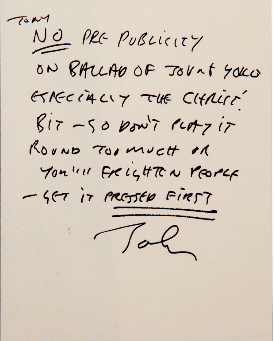 TONY
NO PRE PUBLICITY
ON BALLAD OF JOHN & YOKO
ESPECIALLY THE 'CHRIST!'
BIT - SO DON'T PLAY IT
ROUND TOO MUCH OR
YOU'LL FRIGHTEN PEOPLE
- GET IT PRESSED FIRST
John